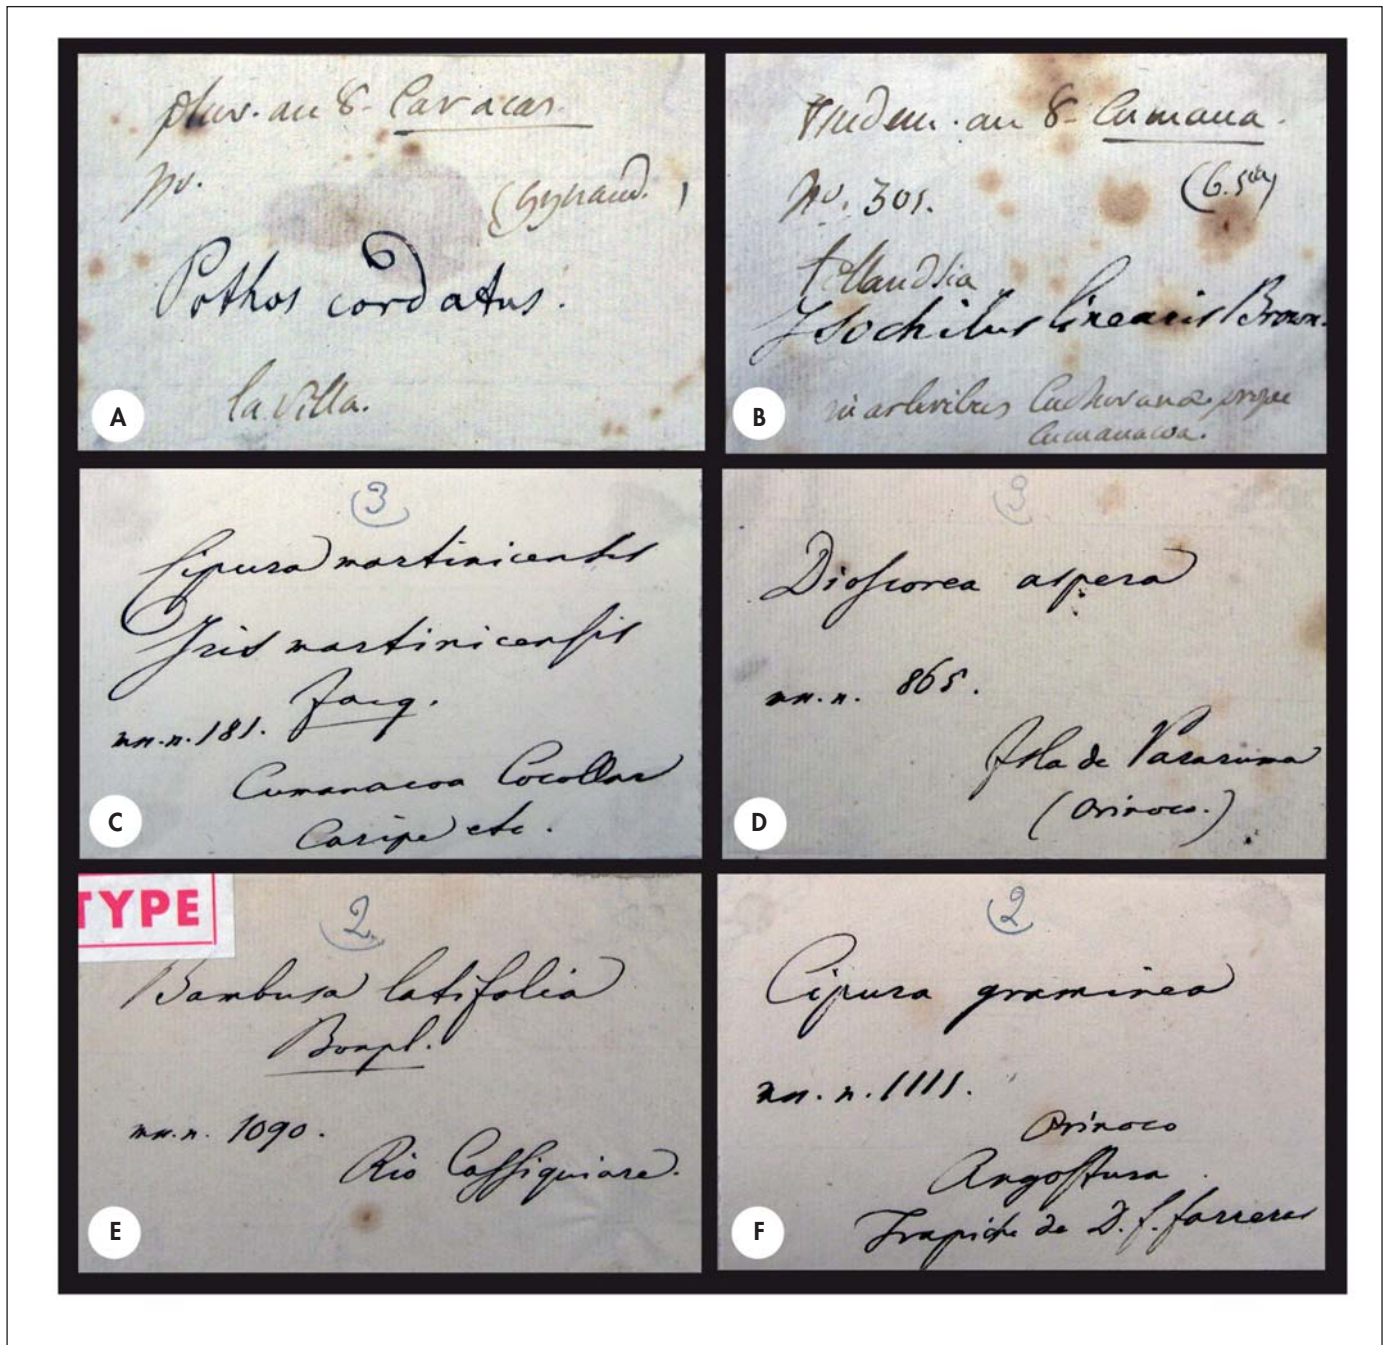 pluv. an 8. Caracas.
no.
(Gynand.)
Pothos cordatus.
la villa.
A
an 8. Cumana.
No. 301.
tillandsia
Isochilus linearis Brown.
in arboribus prope
Cumanacoa.
B
3
Cipura martinicensis
Iris martinicensis
Jacq.
mn.n. 181.
Cumanacoa Cocollar
Caripe etc.
C
3
Dioscorea aspera
mn.n. 865.
Isla de Pararuma
(Orinoco.)
D
TYPE
2
Bambusa latifolia
Bonpl.
mn.n. 1090.
Rio Cassiquiare.
E
2
Cipura graminea
mn.n. 1111.
Orinoco
Angostura
Trapiche de D. f. farreras
F